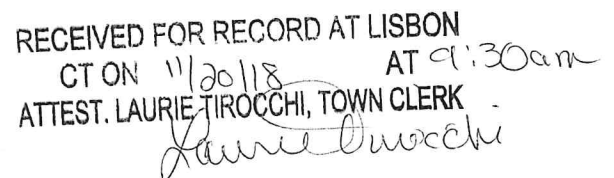 RECEIVED FOR RECORD AT LISBON
CT ON 11/20/18 AT 9:30am
ATTEST. LAURIE TIROCCHI, TOWN CLERK
Laurie Tirocchi